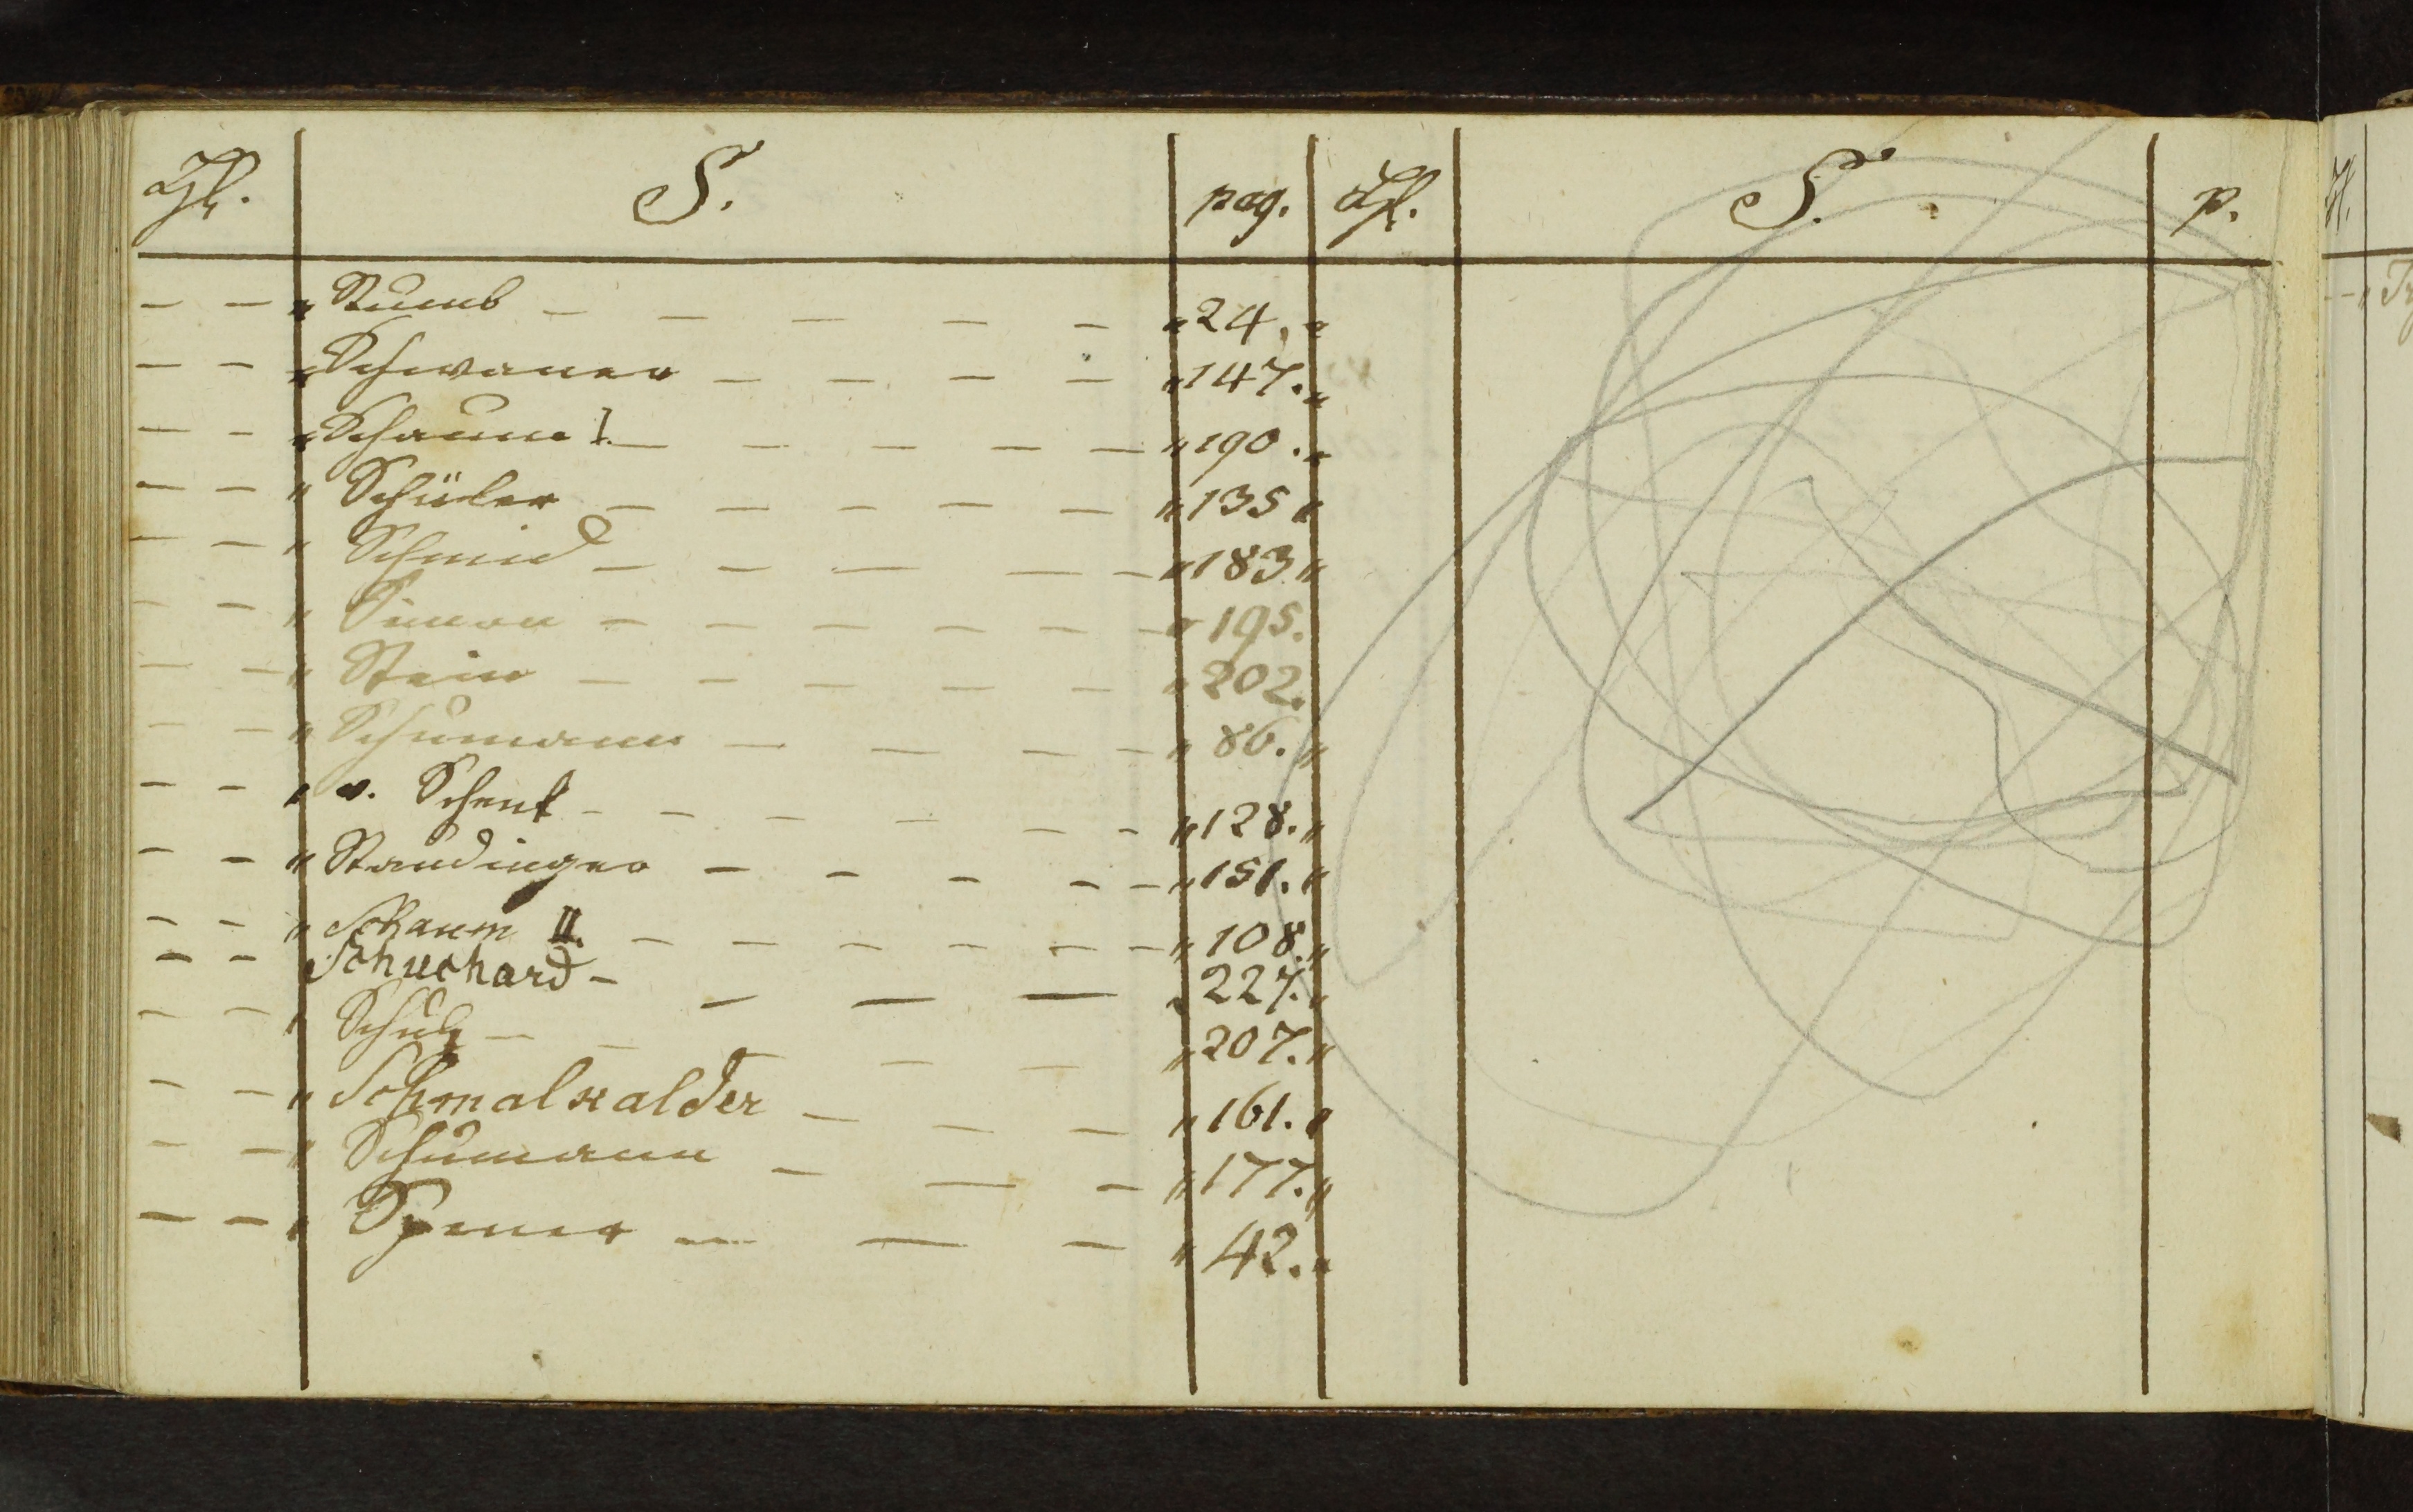 S. pag. S. p.
– – „ Stumb – – – – – „ 24. „
– – „ Schwaner – – – – „ 147. „
– – „ Schaum I. – – – – – „ 190. „
– – „ Schüler – – – – – „ 135 „
– – „ Schmid – – – – – „ 183 „
– – „ Simon – – – – – – „ 195.
– – „ Stein – – – – – „ 202.
– – „ Schumann – – – – „ 86. „
– – „ v. Schenk – – – – – – „ 128. „
– – „ Staudinger – – – – – „ 151. „
– – „ Schaum II. – – – – – – „ 108. „
– – Schuchard – – – – „ 227. „
– – „ Schulz – – – – – „ 207. „
– – „ Schmalkalder – – – „ 161. „
– – „ Schumann – – – „ 177. „
– – „ Spener – – – „ 42. „